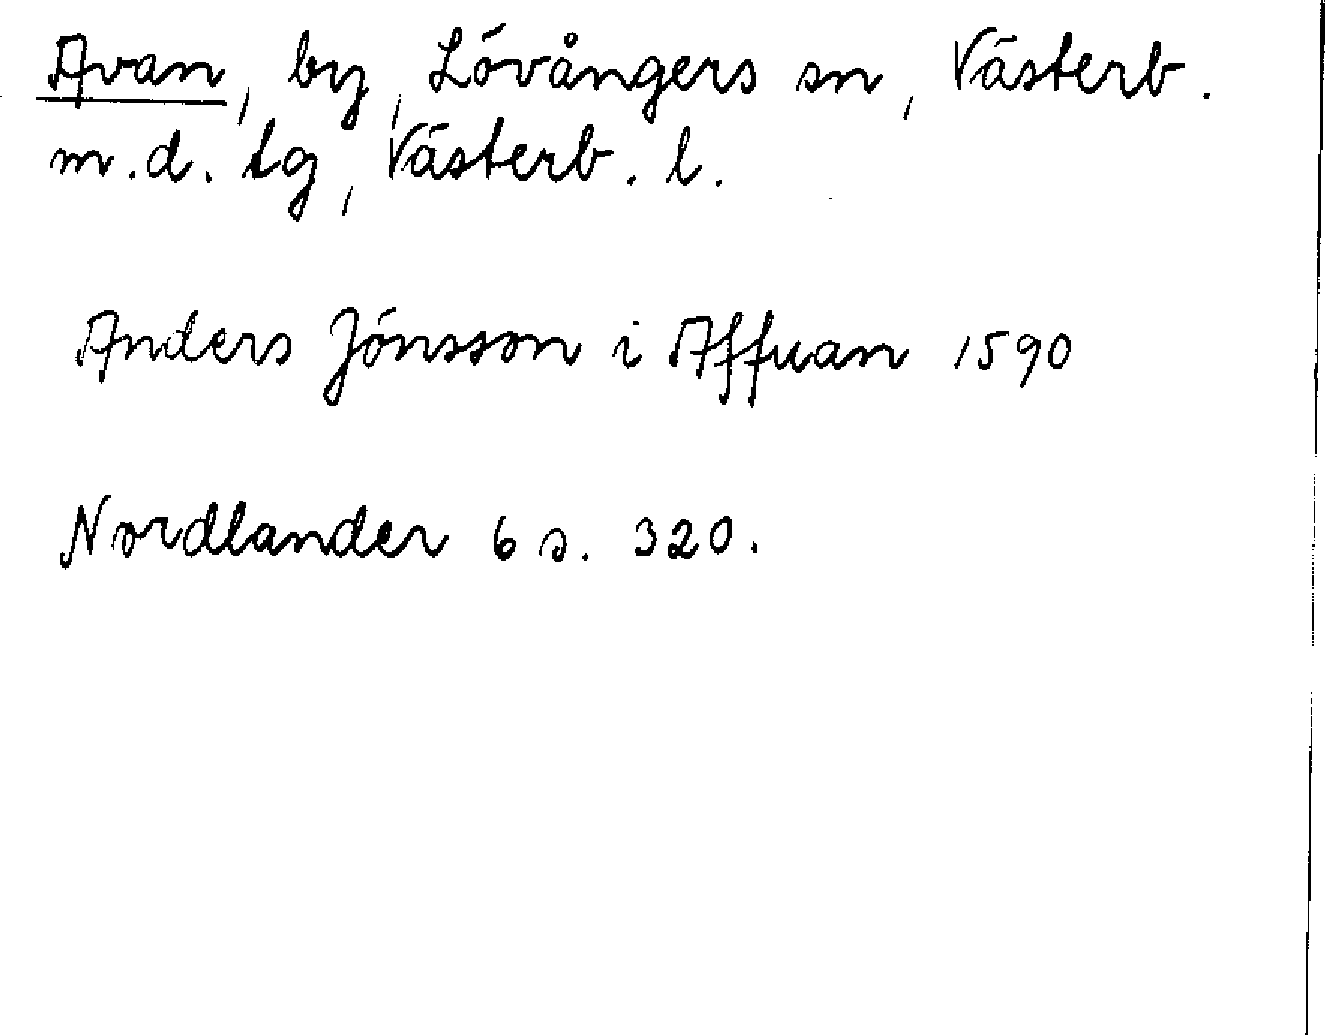 Avan, by, Lövångers sn, Västerb.
m.d. tg, Västerb. l.
Anders Jönsson i Affuan 1590
Nordlander 6 s. 320.